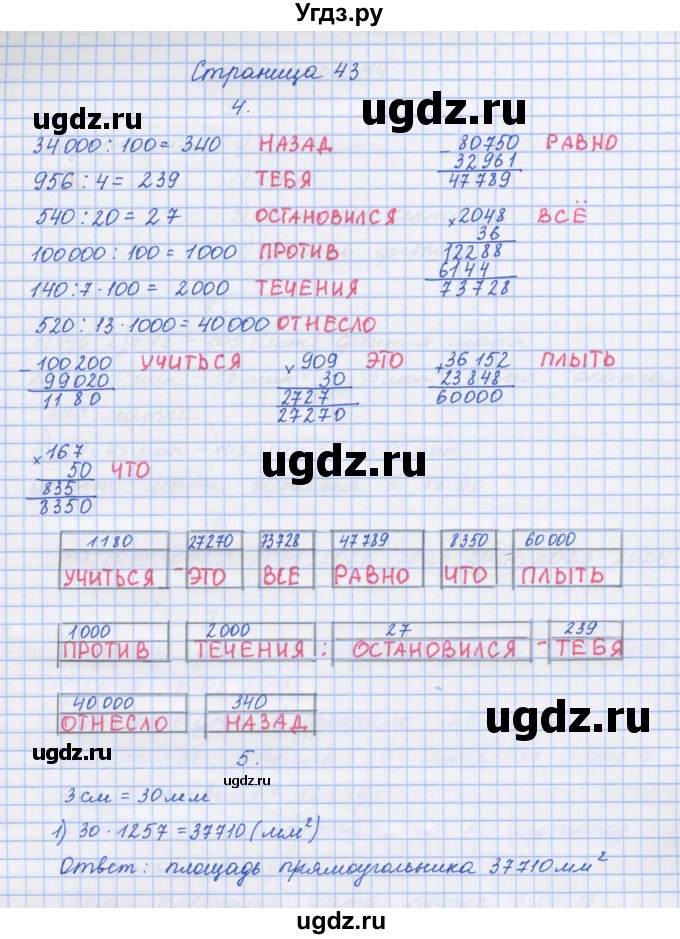 Угдз.ру
Страница 43
ugdz.ru
ugdz.ru
4.
34000 : 100 = 340 НАЗАД
- 80750 РАВНО
32961
47789
956 : 4 = 239 ТЕБЯ
540 : 20 = 27 ОСТАНОВИЛСЯ
× 2048 ВСЁ
36
12288
6144
73728
100000 : 100 = 1000 ПРОТИВ
140 : 7 · 100 = 2000 ТЕЧЕНИЯ
520 : 13 · 1000 = 40000 ОТНЕСЛО
- 100200 УЧИТЬСЯ
99020
1180
× 909 ЭТО
30
2727
27270
+ 36152 ПЛЫТЬ
23848
60000
× 167 ЧТО
50
835
8350
ugdz.ru
ugdz.ru
1180 27270 73728 47789 8350 60000
УЧИТЬСЯ - ЭТО ВСЕ РАВНО ЧТО ПЛЫТЬ
1000 2000 27 239
ПРОТИВ ТЕЧЕНИЯ : ОСТАНОВИЛСЯ - ТЕБЯ
40000 340
ОТНЕСЛО НАЗАД
ugdz.ru
ugdz.ru
5.
ugdz.ru
3 см = 30 мм
1) 30 · 1257 = 37710 (мм²)
Ответ: площадь прямоугольника 37710 мм²
ugdz.ru